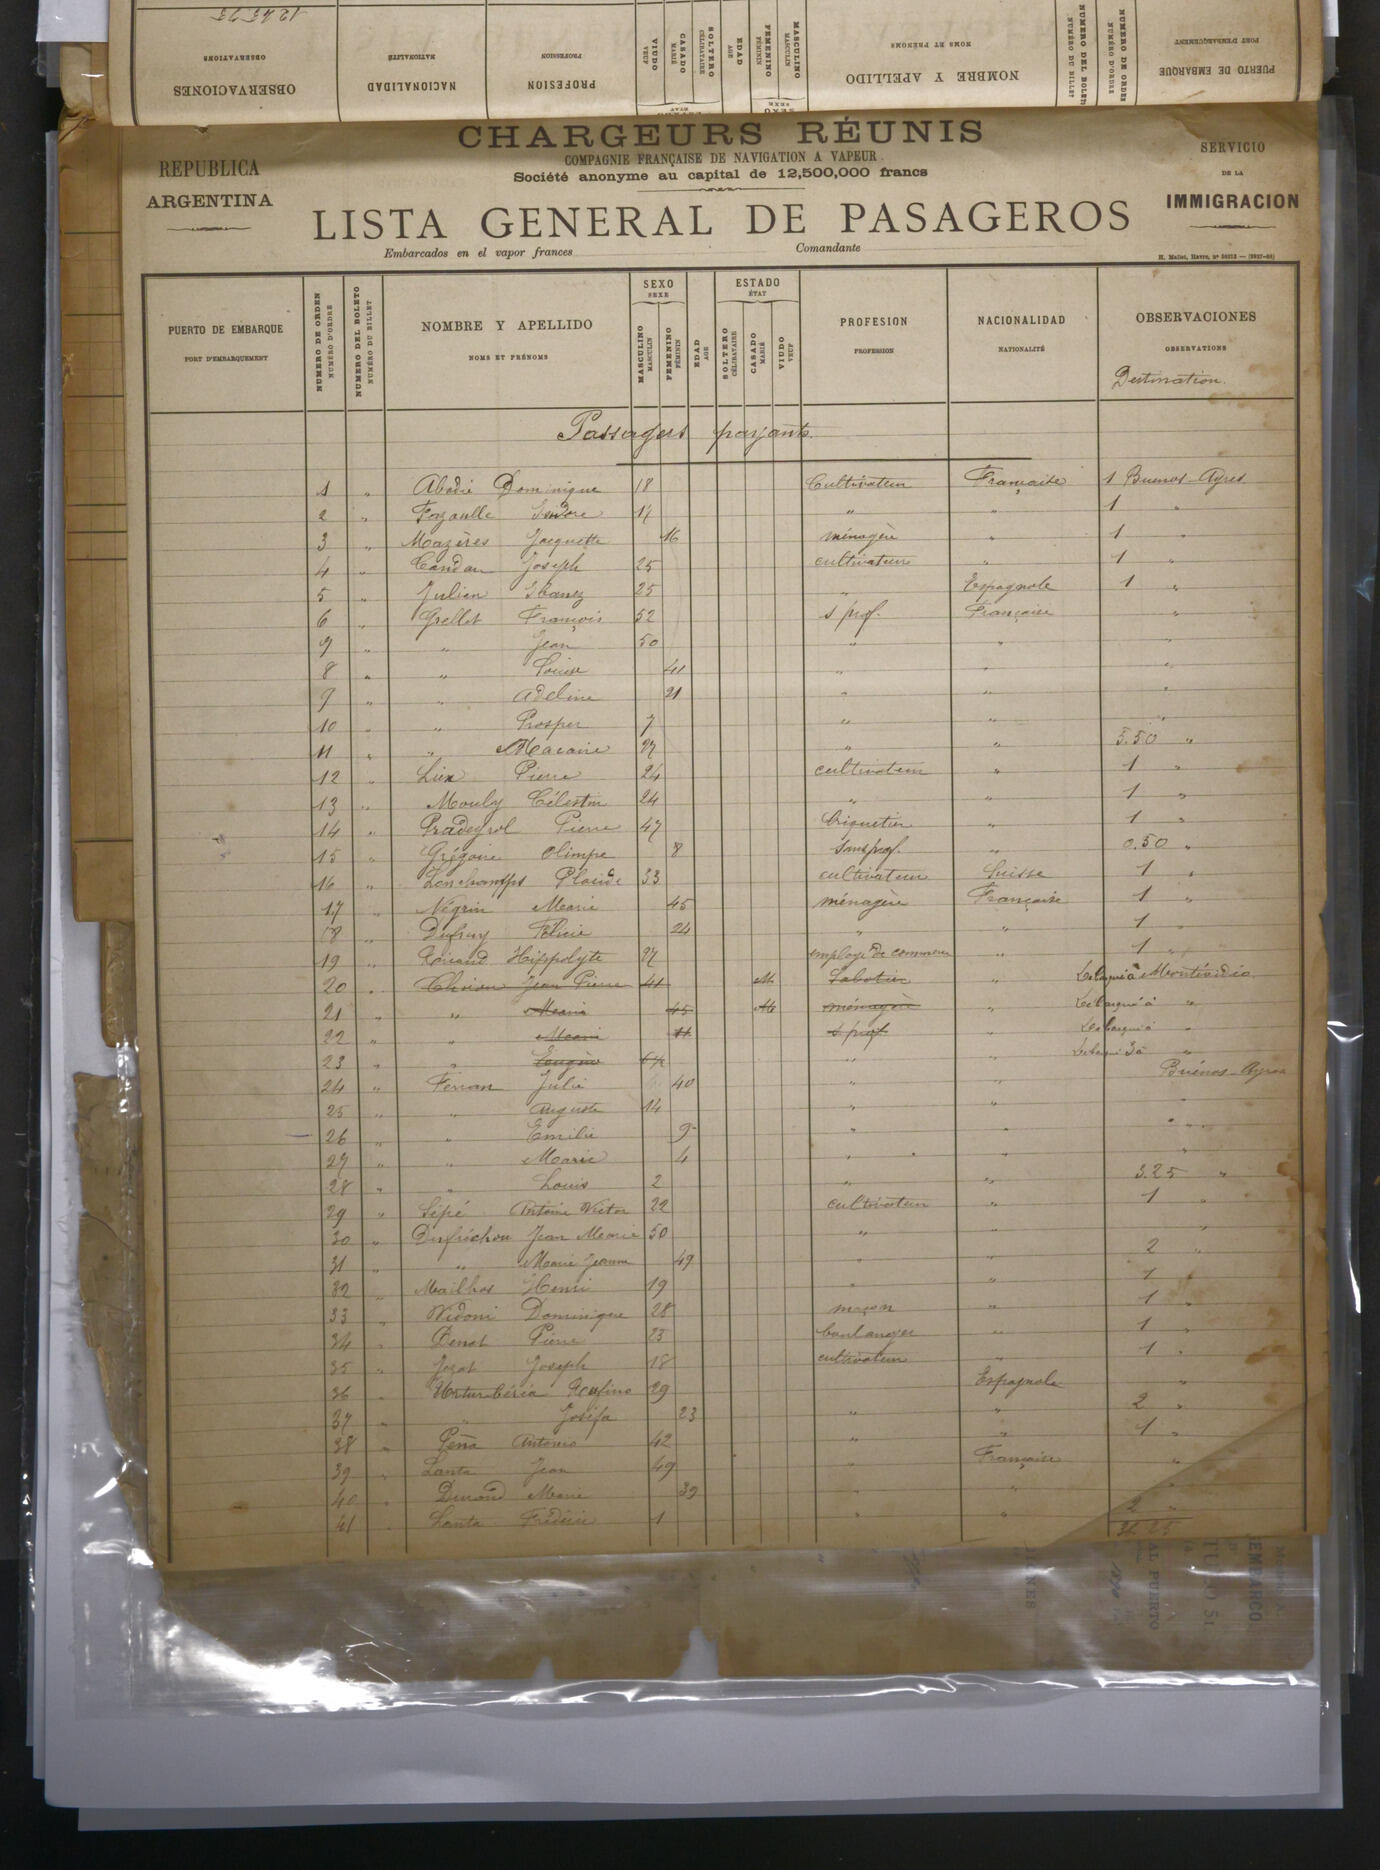 12.45.75
OBSERVACIONES
OBSERVATIONS
NACIONALIDAD
NATIONALITÉ
PROFESION
PROFESSION
VIUDO
VEUF
CASADO
MARIÉ
SOLTERO
CÉLIBATAIRE
EDAD
AGE
FEMENINO
FÉMININ
MASCULINO
MASCULIN
ÉTAT
SEXE
NOMBRE Y APELLIDO
NOMS ET PRÉNOMS
NUMERO DEL BOLETO
NUMÉRO DU BILLET
NUMERO DE ORDEN
NUMÉRO D'ORDRE
PUERTO DE EMBARQUE
PORT D'EMBARQUEMENT
CHARGEURS RÉUNIS
COMPAGNIE FRANÇAISE DE NAVIGATION A VAPEUR
Société anonyme au capital de 12,500,000 francs
REPUBLICA
ARGENTINA
SERVICIO
DE LA
IMMIGRACION
LISTA GENERAL DE PASAGEROS
Embarcados en el vapor frances Comandante
PUERTO DE EMBARQUE
PORT D'EMBARQUEMENT
NUMERO DE ORDEN
NUMÉRO D'ORDRE
NUMERO DEL BOLETO
NUMÉRO DU BILLET
NOMBRE Y APELLIDO
NOMS ET PRÉNOMS
SEXO
SEXE
MASCULINO
MASCULIN
FEMENINO
FÉMININ
EDAD
AGE
ESTADO
ÉTAT
SOLTERO
CÉLIBATAIRE
CASADO
MARIÉ
VIUDO
VEUF
PROFESION
PROFESSION
NACIONALIDAD
NATIONALITÉ
OBSERVACIONES
OBSERVATIONS
Destination.
Passagers payants.
1 " Abadie Dominique 18 Cultivateur Française 1 Buenos-Ayres
2 " Isidore 17 " " 1 "
3 " Mazères Jacquette 16 ménagère " 1 "
4 " Candau Joseph 25 cultivateur " 1 "
5 " Julien Ibanez 25 " Espagnole 1 "
6 " Grellet François 52 s prof. Française "
7 " " Jean 50 " " "
8 " " Louise 41 " " "
9 " " Adeline 21 " " "
10 " " Prosper 7 " " "
11 " " Macaire 27 " " 5.50 "
12 " Pierre 24 cultivateur " 1 "
13 " Mouly Célestin 24 " " 1 "
14 " Pradeyrol Pierre 47 briquetier " 1 "
15 " Grégoire Olimpe 8 sans prof. " 0.50 "
16 " Lonchamps Placide 33 cultivateur Suisse 1 "
17 " Négrin Marie 45 ménagère Française 1 "
18 " Félicie 24 " " 1 "
19 " Hippolyte 27 employé de commerce " 1 "
20 " Jean Pierre 41 M Sabotier " Débarqué à Montévidéo
21 " " Marie 45 M ménagère " Débarqué à "
22 " " Marie 11 s prof " Débarqué à "
23 " " Eugène " " Débarqué à "
24 " Ferran Julie 40 " " Buénos-Ayres
25 " " Auguste 14 " " "
26 " " Emilie 9 " " "
27 " " Marie 4 " " "
28 " " Louis 2 " " 3.25 "
29 " Sépé Antoine Victor 22 cultivateur " 1 "
30 " Jean Marie 50 " "
31 " " Marie Jeanne 49 " " 2 "
32 " Mailhos Henri 19 " " 1 "
33 " Vidoni Dominique 28 maçon " 1 "
34 " Benot Pierre 23 boulanger " 1 "
35 " Jozat Joseph 18 cultivateur " 1 "
36 " Rufino 29 Espagnole "
37 " " Josefa 23 " " 2 "
38 " Peña Antonio 42 " " 1 "
39 " Lanta Jean 49 " Française "
40 " Durand Marie 39 " " "
41 " Lanta Frédéric 1 " " 2 "
EMBARCO
AL PUERTO